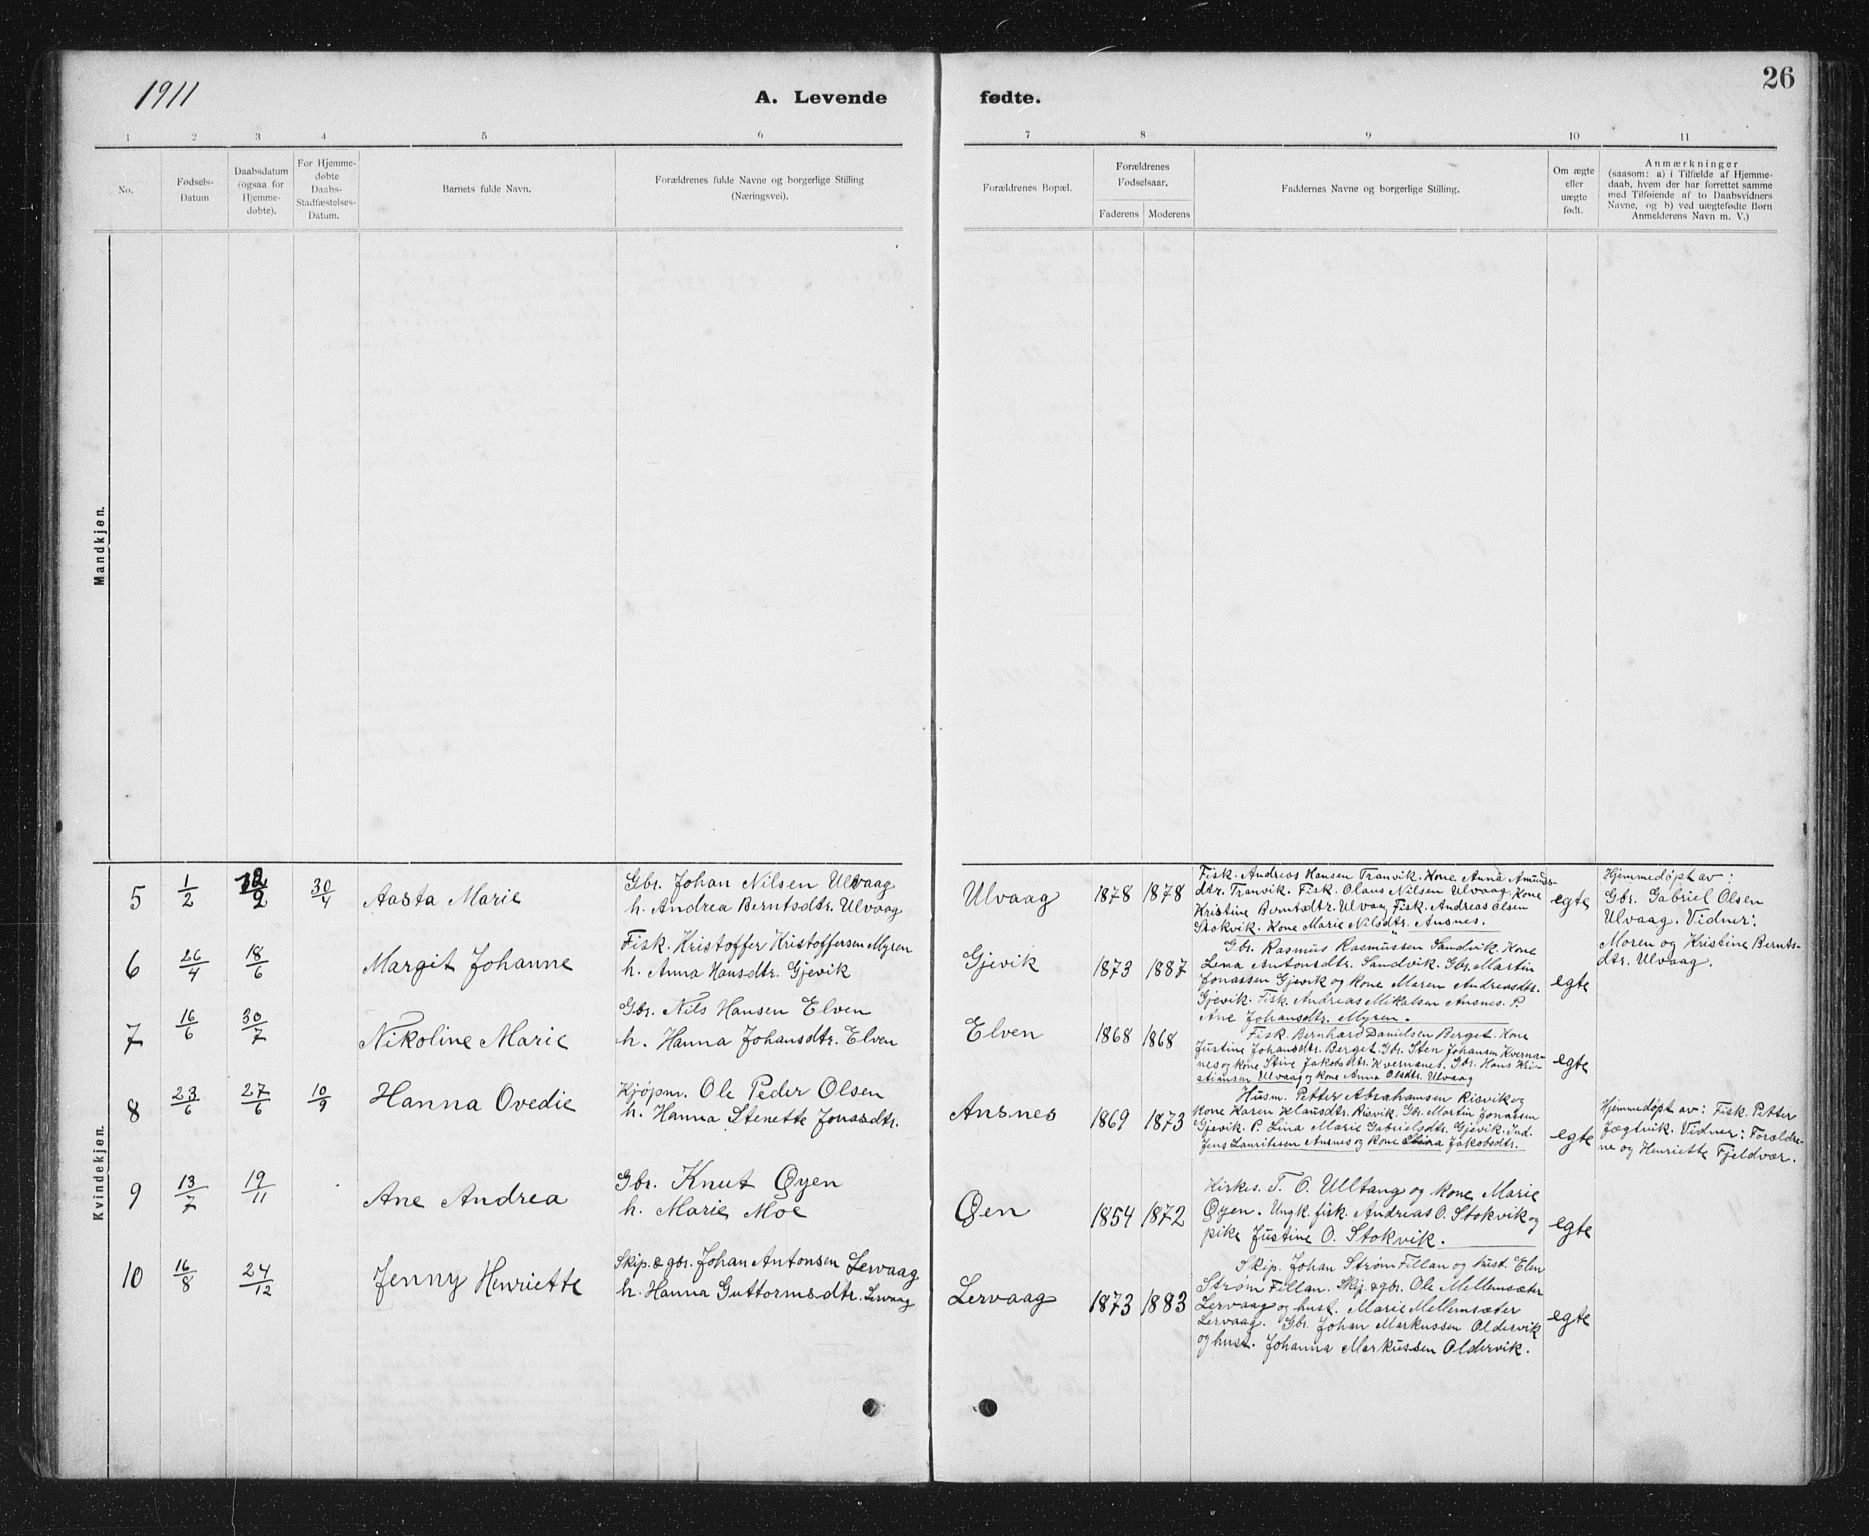 1911
A. Levende fødte.
26
1 2 3 4 5 6 7 8 9 10 11
No.
Fødsels-
Datum
Daabsdatum
(ogsaa for
Hjemme-
døbte).
For Hjemme-
døbte
Daabs-
Stadfæstelses-
Datum.
Barnets fulde Navn.
Forældrenes fulde Navne og borgerlige Stilling
(Næringsvei).
Forældrenes Bopæl.
Forældrenes
Fødselsaar.
Faderens Moderens
Faddernes Navne og borgerlige Stilling.
Om ægte
eller
uægte
født.
Anmærkninger
(saasom: a) i Tilfælde af Hjemme-
daab, hvem der har forrettet samme
med Tilføiende af to Daabsvidners
Navne, og b) ved uægtefødte Børn
Anmelderens Navn m. V.)
Mandkjøn.
Kvindekjøn.
5 1/2 12/2 30/4 Aasta Marie
Gbr. Johan Nilsen Ulvaag
h. Andrea Berntsdtr. Ulvaag
Ulvaag 1878 1878
Fisk. Andreas Hansen Tranvik. Kone Anna Amunds-
dtr. Tranvik. Fisk. Olaus Nilsen Ulvaag, Kone
Kristine Berntsdtr. Ulvaag, Fisk. Andreas Olsen
Stokvik. Kone Marie Nilsdtr. Ansnes.
egte
Hjemmedøpt av:
Gbr. Gabriel Olsen
Ulvaag. Vidner:
Moren og Kristine Bernts-
dtr. Ulvaag.
6 26/4 18/6 Margit Johanne
Fisk. Kristoffer Kristoffersen Myren
h. Anna Hansdtr. Gjevik
Gjevik 1873 1887
Gbr. Rasmus Rasmussen Sandvik. Kone
Lena Antonsdtr. Sandvik. Gbr. Martin
Jonassen Gjevik og kone Maren Andreasdtr.
Gjevik. Fisk. Andreas Mikalsen Ansnes. P.
Ane Johansdtr. Myren.
egte
7 16/6 30/7 Nikoline Marie
Gbr. Nils Hansen Elven
h. Hanna Johansdtr. Elven
Elven 1868 1868
Fisk. Bernhard Danielsen Berget. Kone
Justine Johansdtr. Berget. Gbr. Sten Johansen Kverna-
nes og kone Stine Jakobsdtr. Kvernanes. Gbr. Hans Kri-
stiansen Ulvaag og kone Anna Olsdtr. Ulvaag
egte
8 23/6 27/6 10/9 Hanna Ovedie
Kjøpm. Ole Peder Olsen
h. Hanna Stenette Jonasdtr.
Ansnes 1869 1873
Husm. Petter Abrahamsen Risvik og
kone Karen Klausdtr. Risvik. Gbr. Martin Jonassen
Gjevik. P. Lina Marie Gabrielsdtr. Gjevik. Ind.
Jens Lauritsen Ansnes og kone Stina Jakobsdtr.
egte
Hjemmedøpt av: Fisk. Petter
Jægtvik. Vidner: Foreldre-
ne og Henriette Fjeldvær.
9 13/7 19/11 Ane Andrea
Gbr. Knut Øyen
h. Marie Moe
Øen 1854 1872
Kirkes. T. O. Ulltang og kone Marie
Øyen. Ungk. fisk. Andreas O. Stokvik og
pike Justine O. Stokvik.
egte
10 16/8 24/12 Jenny Henriette
Skip. & gbr. Johan Antonsen Lervaag
h. Hanna Guttormsdtr. Lervaag
Lervaag 1873 1883
Skip. Johan Strøm Fillan og hust. Elen
Strøm Fillan. Skip. & gbr. Ole Mellemsæter
Lervaag og hust. Marie Mellemsæter
Lervaag. Gbr. Johan Markussen Oldervik
og hust. Johanna Markussen Oldervik.
egte